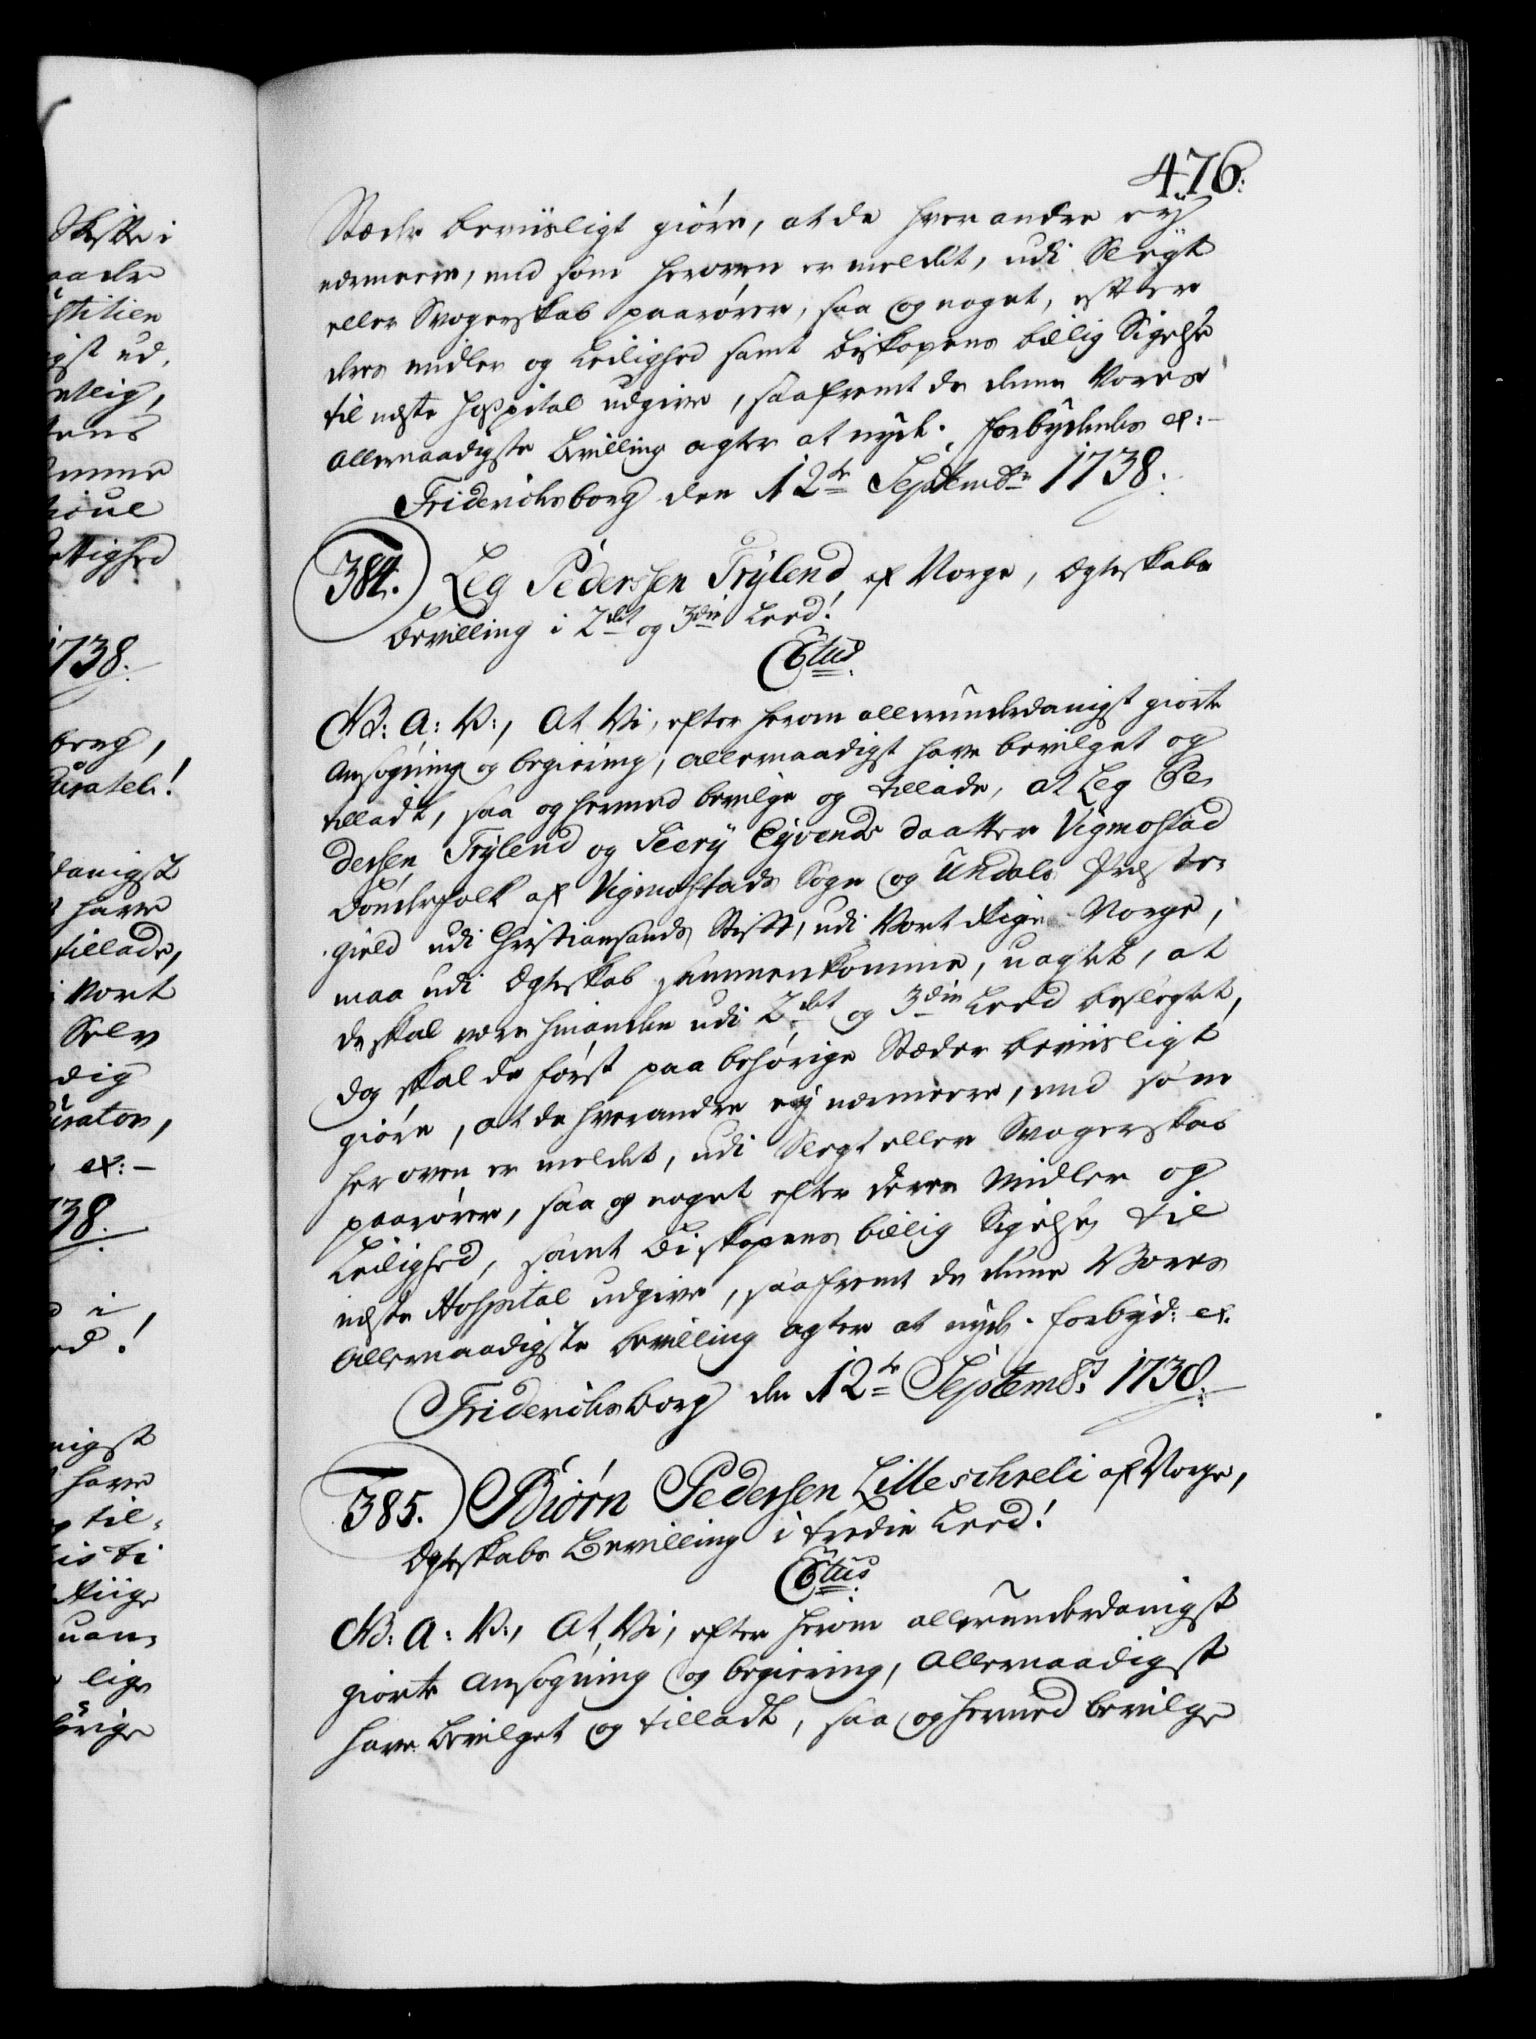 476:
Stæder beviisligt giøre, at de hverandre ey
nærmere, end som heroven er meldet, udi Slegt
eller Svogerskab paarører, saa og noget, efter
deres midler og Leilighed samt Biskopens billig Sigelse
til næste Hospital udgive, saafremt de denne Vores
allernaadigste Bevilling agter at nyde. Forbydendes &:-
Friderichsborg den 12te Septembr 1738.
384. Leg Pederssen Trylend af Norge, Ægteskabs
Bevilling i 2det og 3die Leed!
C6tus
G: A: V:, At Vi, efter herom allerunderdanigst giorte
Ansøgning og begiering, allernaadigst have bevilget og
tilladt, saa og hermed bevilge og tillade, at Leg Pe-
dersen Trylend og Siery Eyvends daatter Vigmostad
Bønderfolk af Vigmostads Sogn og Undals Præste-
gield udi Christiansands Stift, udi Vort Rige Norge,
maa udi Ægteskab sammenkomme, uagtet, at
de skal være hinanden udi 2det og 3die Leed beslegtet,
dog skal de først paa behørige Stæder beviisligt
giøre, at de hverandre ey nærmere, end som
heroven er meldet, udi Slegt eller Svogerskab
paarører, saa og noget efter deres Midler og
Leilighed, samt Biskopens billig Sigelse til
næste Hospital udgive, saafremt de denne Vores
Allernaadigste Bevilling agter at nyde. Forbyd: &.
Friderichsborg den 12te Septem8r 1738.
385. Biørn Pedersen Lilleschreli af Norge,
Ægteskabs Bevilling i tredie Leed!
C6tus
G: A: V:, At Vi, efter herom allerunderdanigst
giorte Ansøgning og begiering, Allernaadigst
have Bevilget og tilladt, saa og hermed bevilge